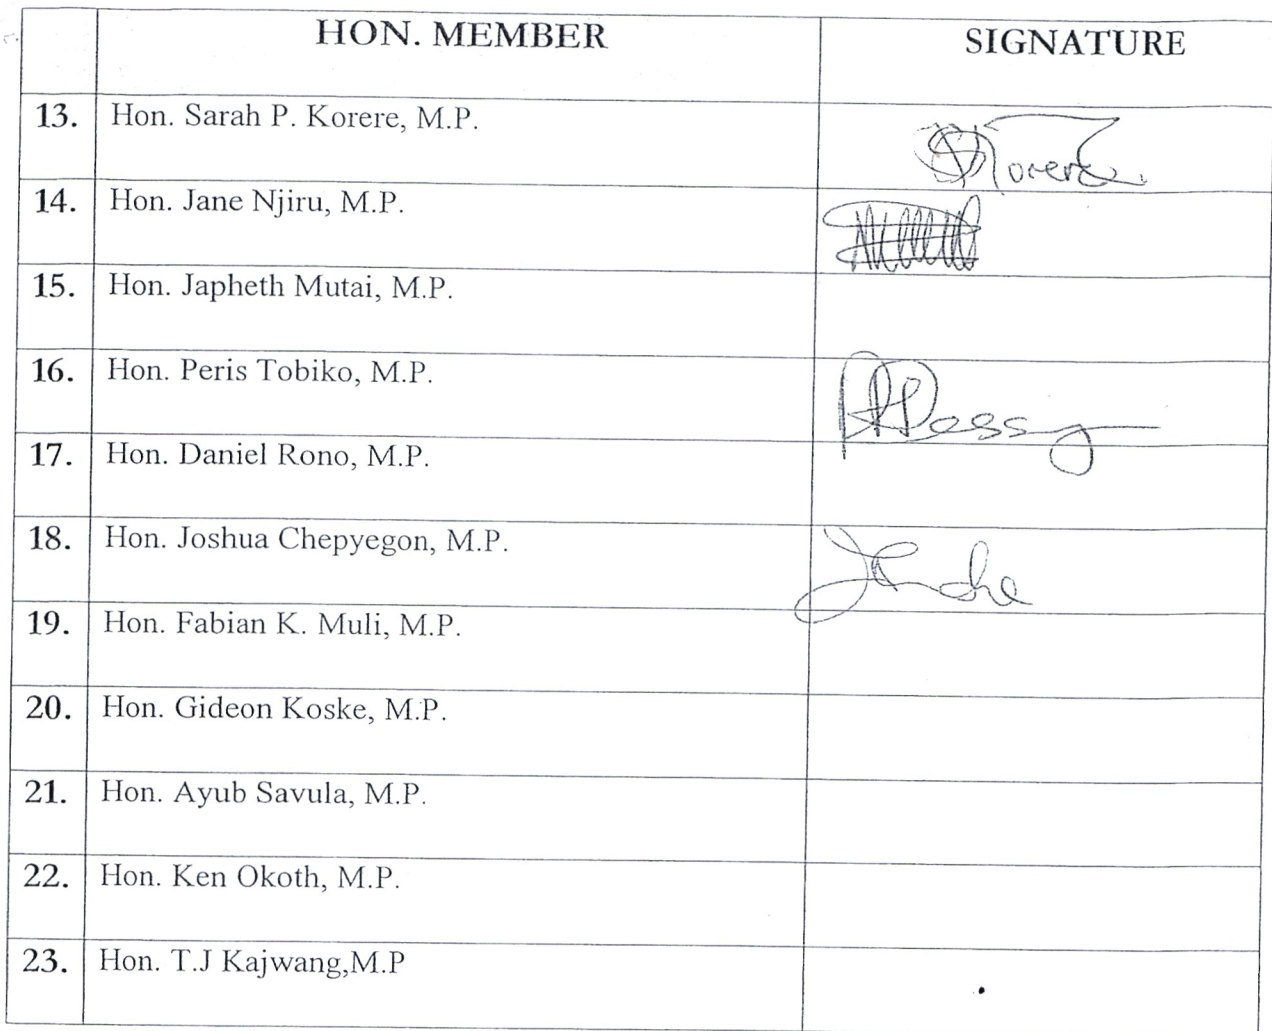 HON. MEMBER SIGNATURE
13. Hon. Sarah P. Korere, M.P. Korere
14. Hon. Jane Njiru, M.P.
15. Hon. Japheth Mutai, M.P.
16. Hon. Peris Tobiko, M.P.
17. Hon. Daniel Rono, M.P.
18. Hon. Joshua Chepyegon, M.P.
19. Hon. Fabian K. Muli, M.P.
20. Hon. Gideon Koske, M.P.
21. Hon. Ayub Savula, M.P.
22. Hon. Ken Okoth, M.P.
23. Hon. T.J Kajwang,M.P